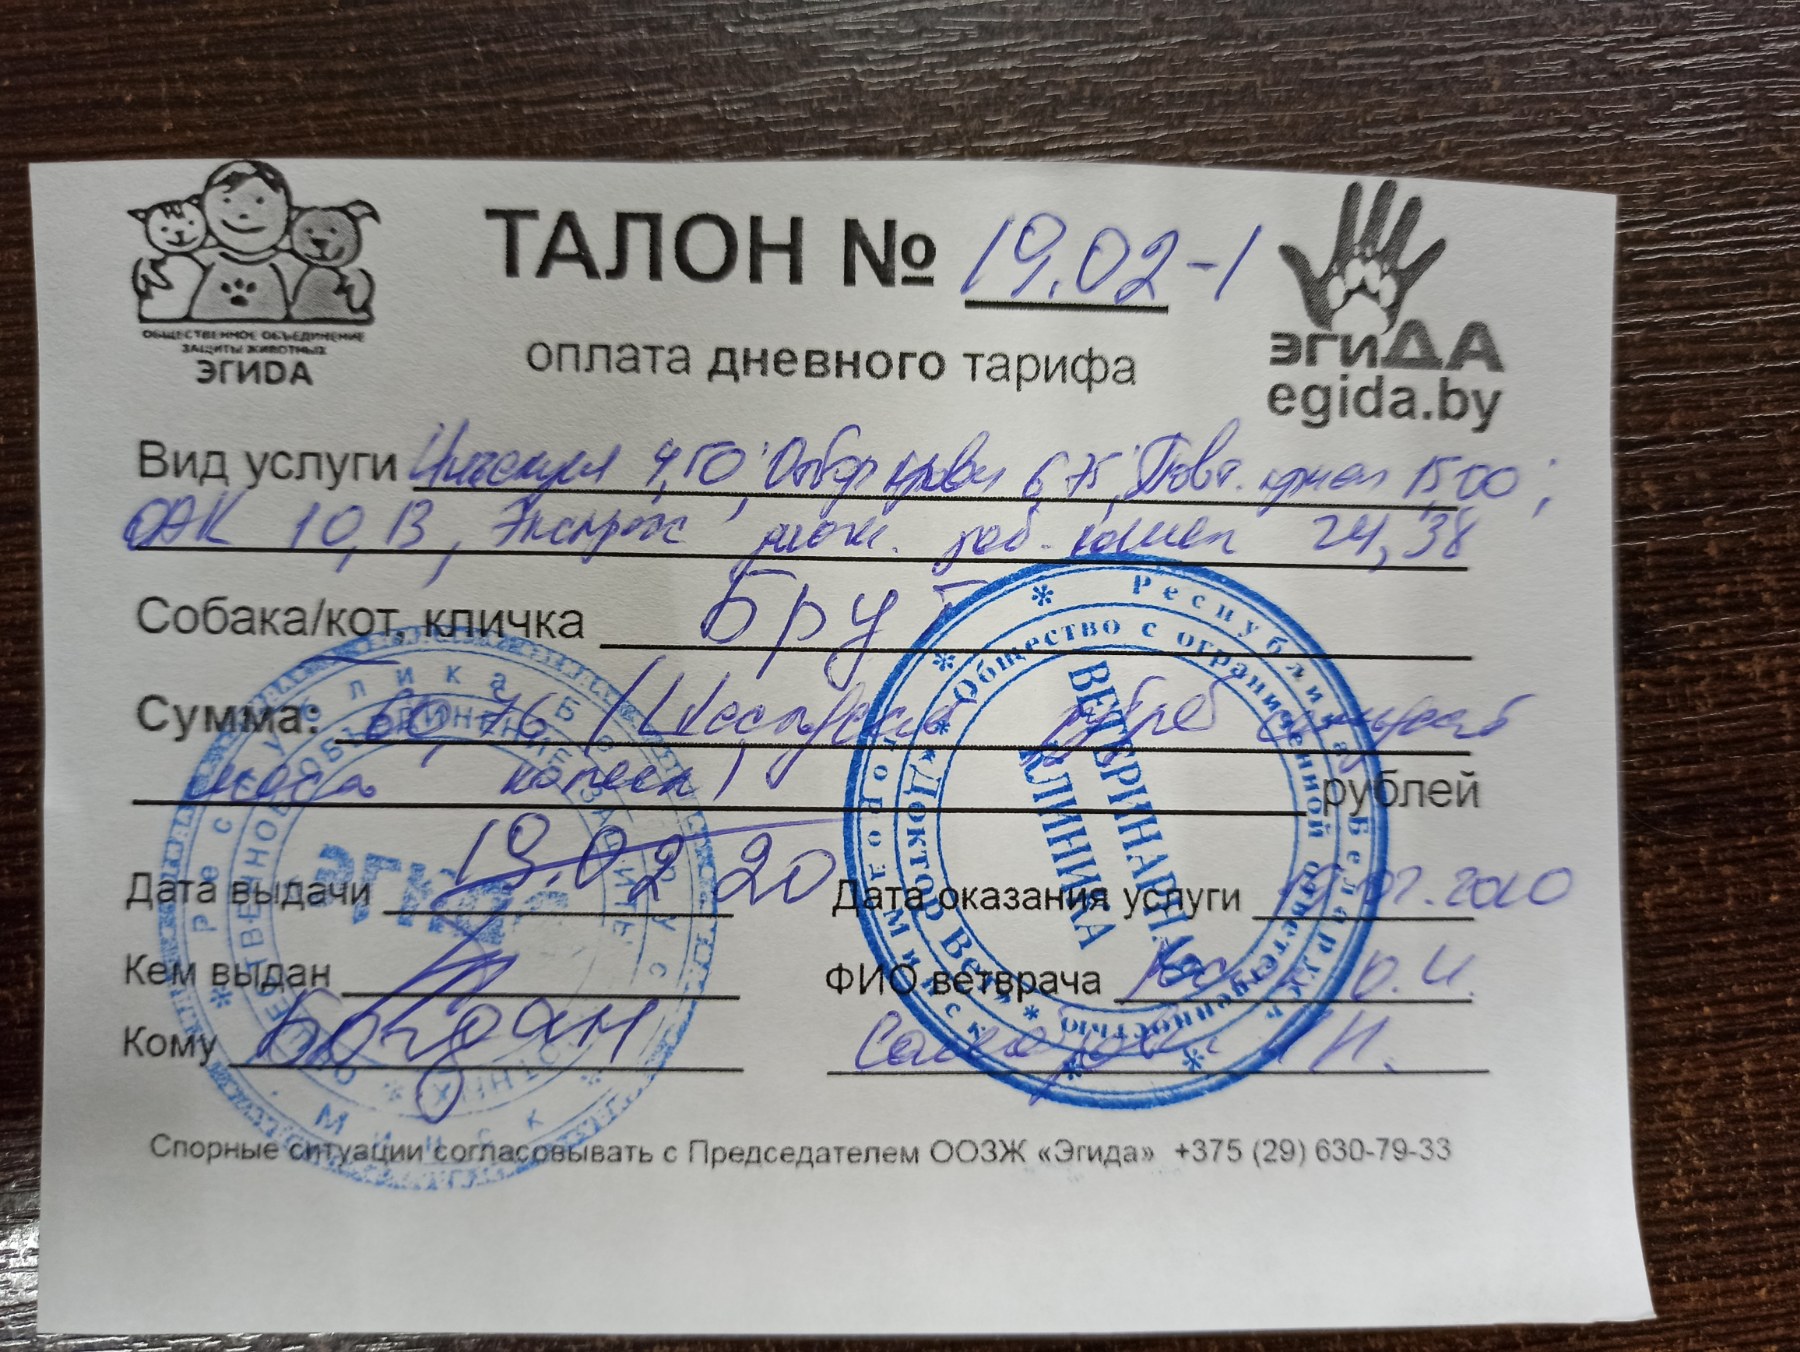 ТАЛОН № 19.02-1
ОБЩЕСТВЕННОЕ ОБЪЕДИНЕНИЕ
ЗАЩИТЫ ЖИВОТНЫХ
ЭГИДА
эгиДА
egida.by
оплата дневного тарифа
Вид услуги Инъекция 4,50; Отбор крови 6,75; Повт. прием 15,00;
ОАК 10,13, Экспресс 24,38
Собака/кот, кличка Брут
Сумма: 60,76 (Шестьдесят рублей семьдесят
шесть копеек) рублей
Дата выдачи 19.02 20
Дата оказания услуги 19.02.2020
Кем выдан
ФИО ветврача О.И.
Кому Богдан
Спорные ситуации согласовывать с Председателем ООЗЖ «Эгида» +375 (29) 630-79-33
Республика Беларусь
г. Минск
ЭГИДА
Республика Беларусь
город Минск
Общество с ограниченной ответственностью
«Доктор Вет»
ВЕТЕРИНАРНАЯ
КЛИНИКА